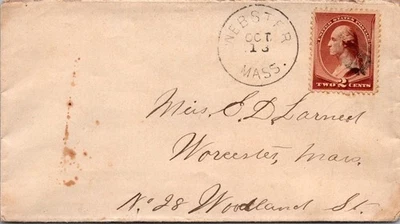 WEBSTER
OCT
13
MASS.
UNITED STATES POSTAGE
TWO 2 CENTS
Miss. E. D. Larned
Worcester, Mass.
No. 28 Woodland St.